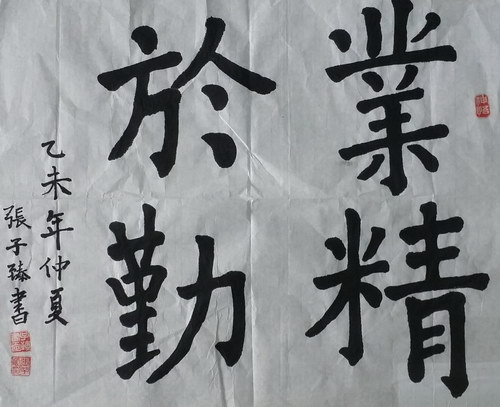 業精
於勤
乙未年仲夏
張子臻書